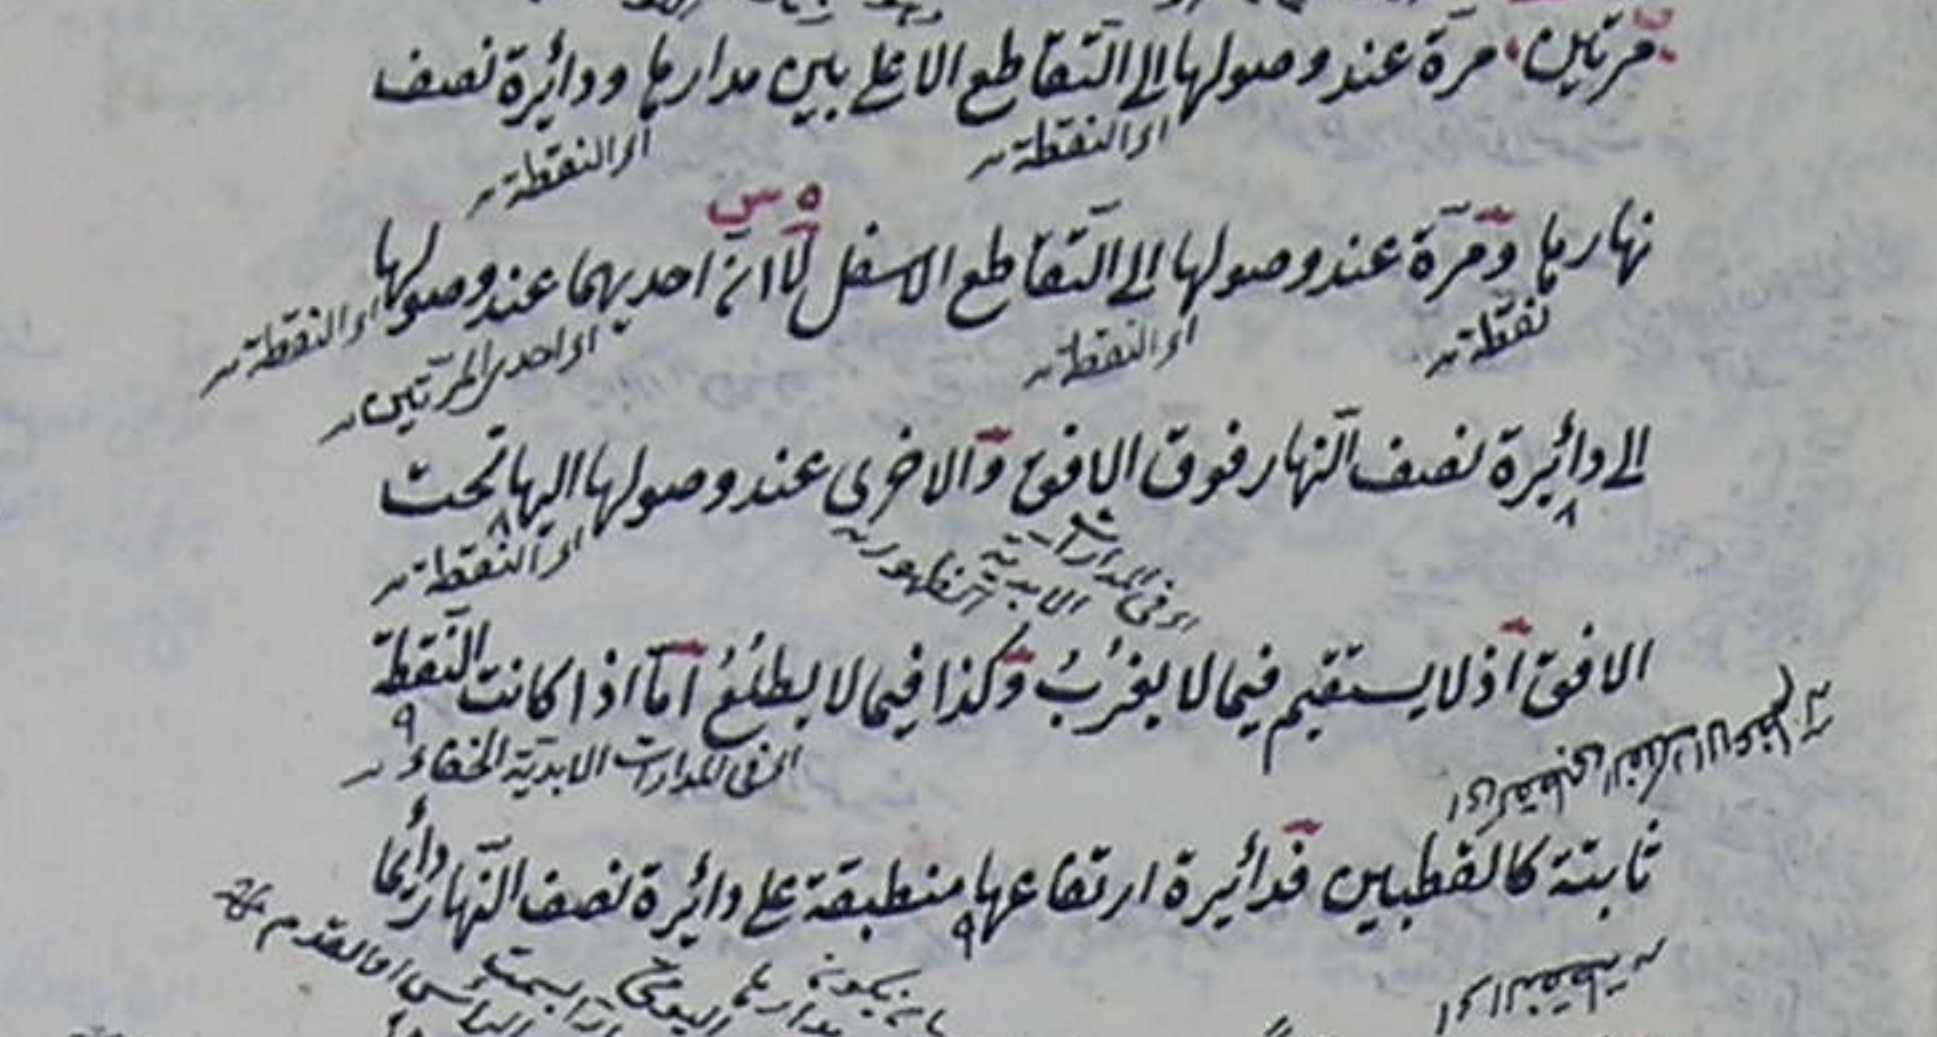 مرتين مرة عند وصولها الى التقاطع الاعلى بين مدارها ودائرة نصف
اى النقطة
اى النقطة
نهارها ومرة عند وصولها الى التقاطع الاسفل لا ان احديهما عند وصولها
نقطة
اى النقطة
اى احدى المرتين
اى النقطة
الى دائرة نصف النهار فوق الافق والاخرى عند وصولها اليها تحت
اى فى المدارات
الابدية
الظهور
اى النقطة
الافق اذ لا يستقيم فيما لا يغرُبُ وكذا فيما لا يطلُعُ اما اذا كانت النقطة
اى فى المدارات الابدية الخفاء
ثابتة كالقطبين فدائرة ارتفاعها منطبقة على دائرة نصف النهار دائما
اى النقطة
بان يكون
مدارها اليومى
بسمت
الراس او القدم